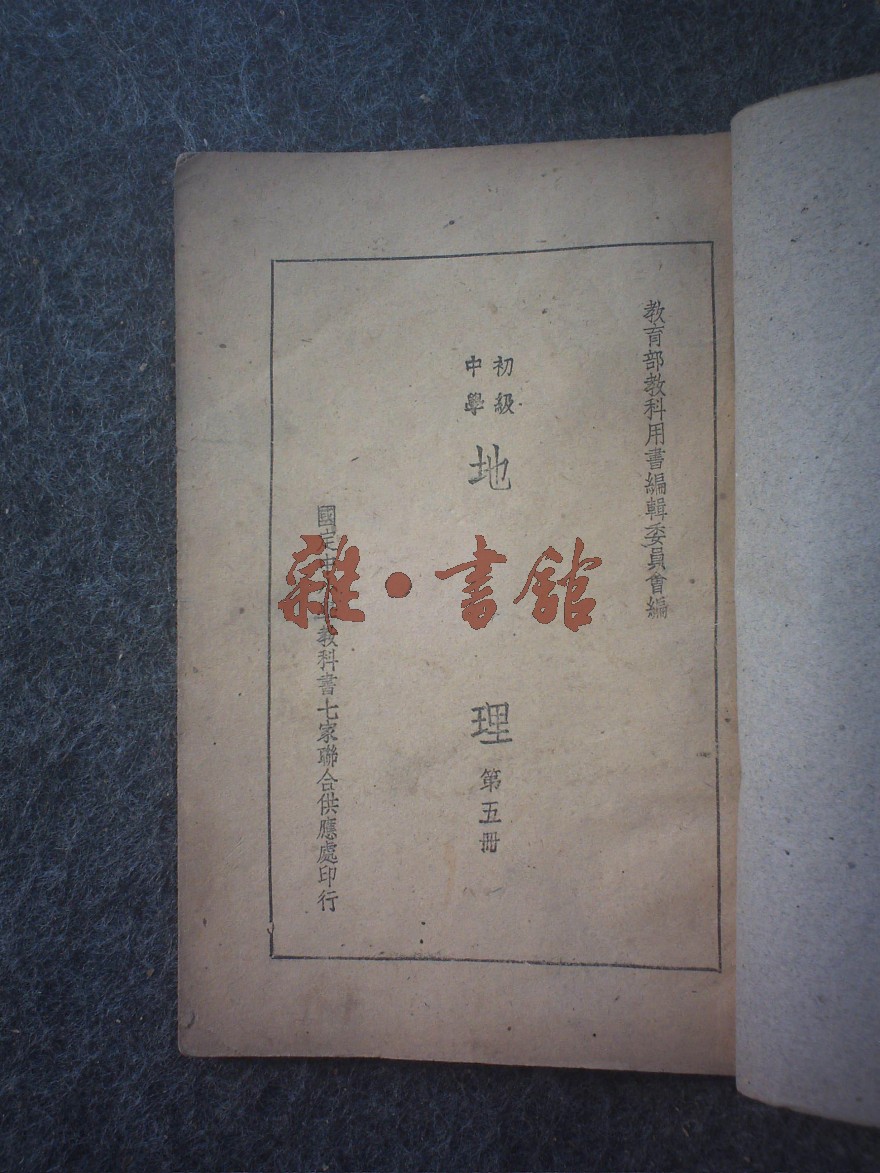 教育部教科用書編輯委員會編
初級
中學
地理
第五冊
國定中
教科書七家聯合供應處印行
雜·書館